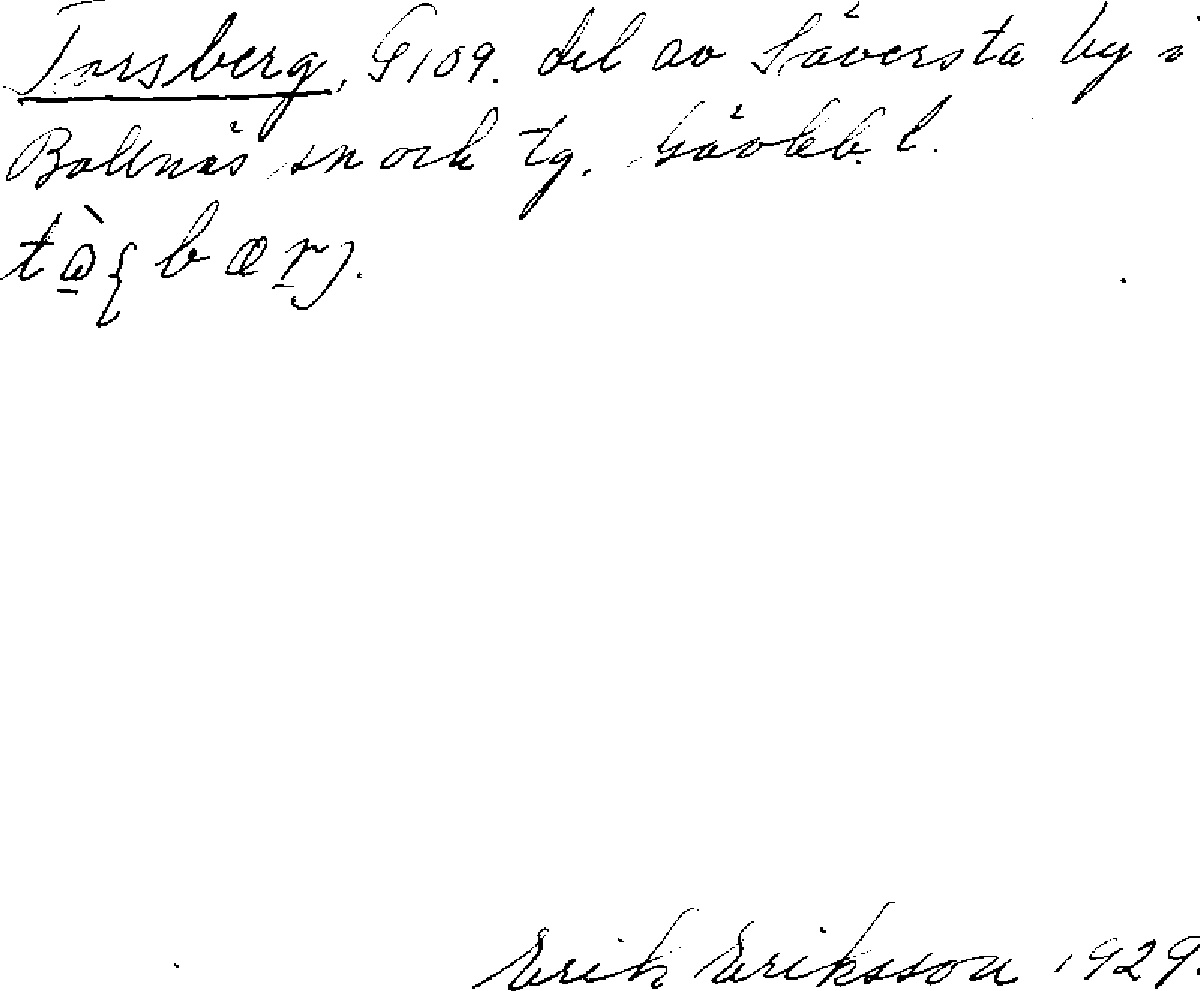 Torsberg, G109. del av Säversta by i
Bollnäs sn och tg. Gävleb. l.
Erik Eriksson 1929.